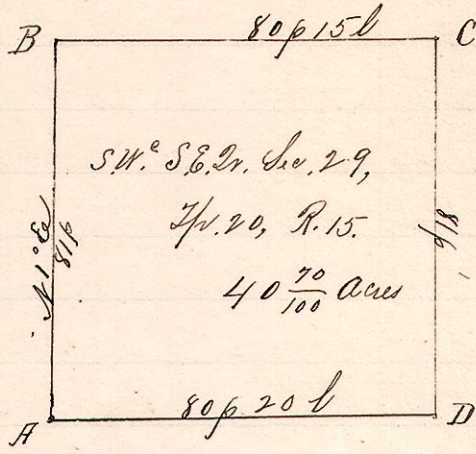 B 80p 15l C
S.W.c S.E. Qr. Sec. 29,
Tp. 20, R. 15.
40 70/100 Acres
N 1° E
81p
81p
A 80p. 20l D